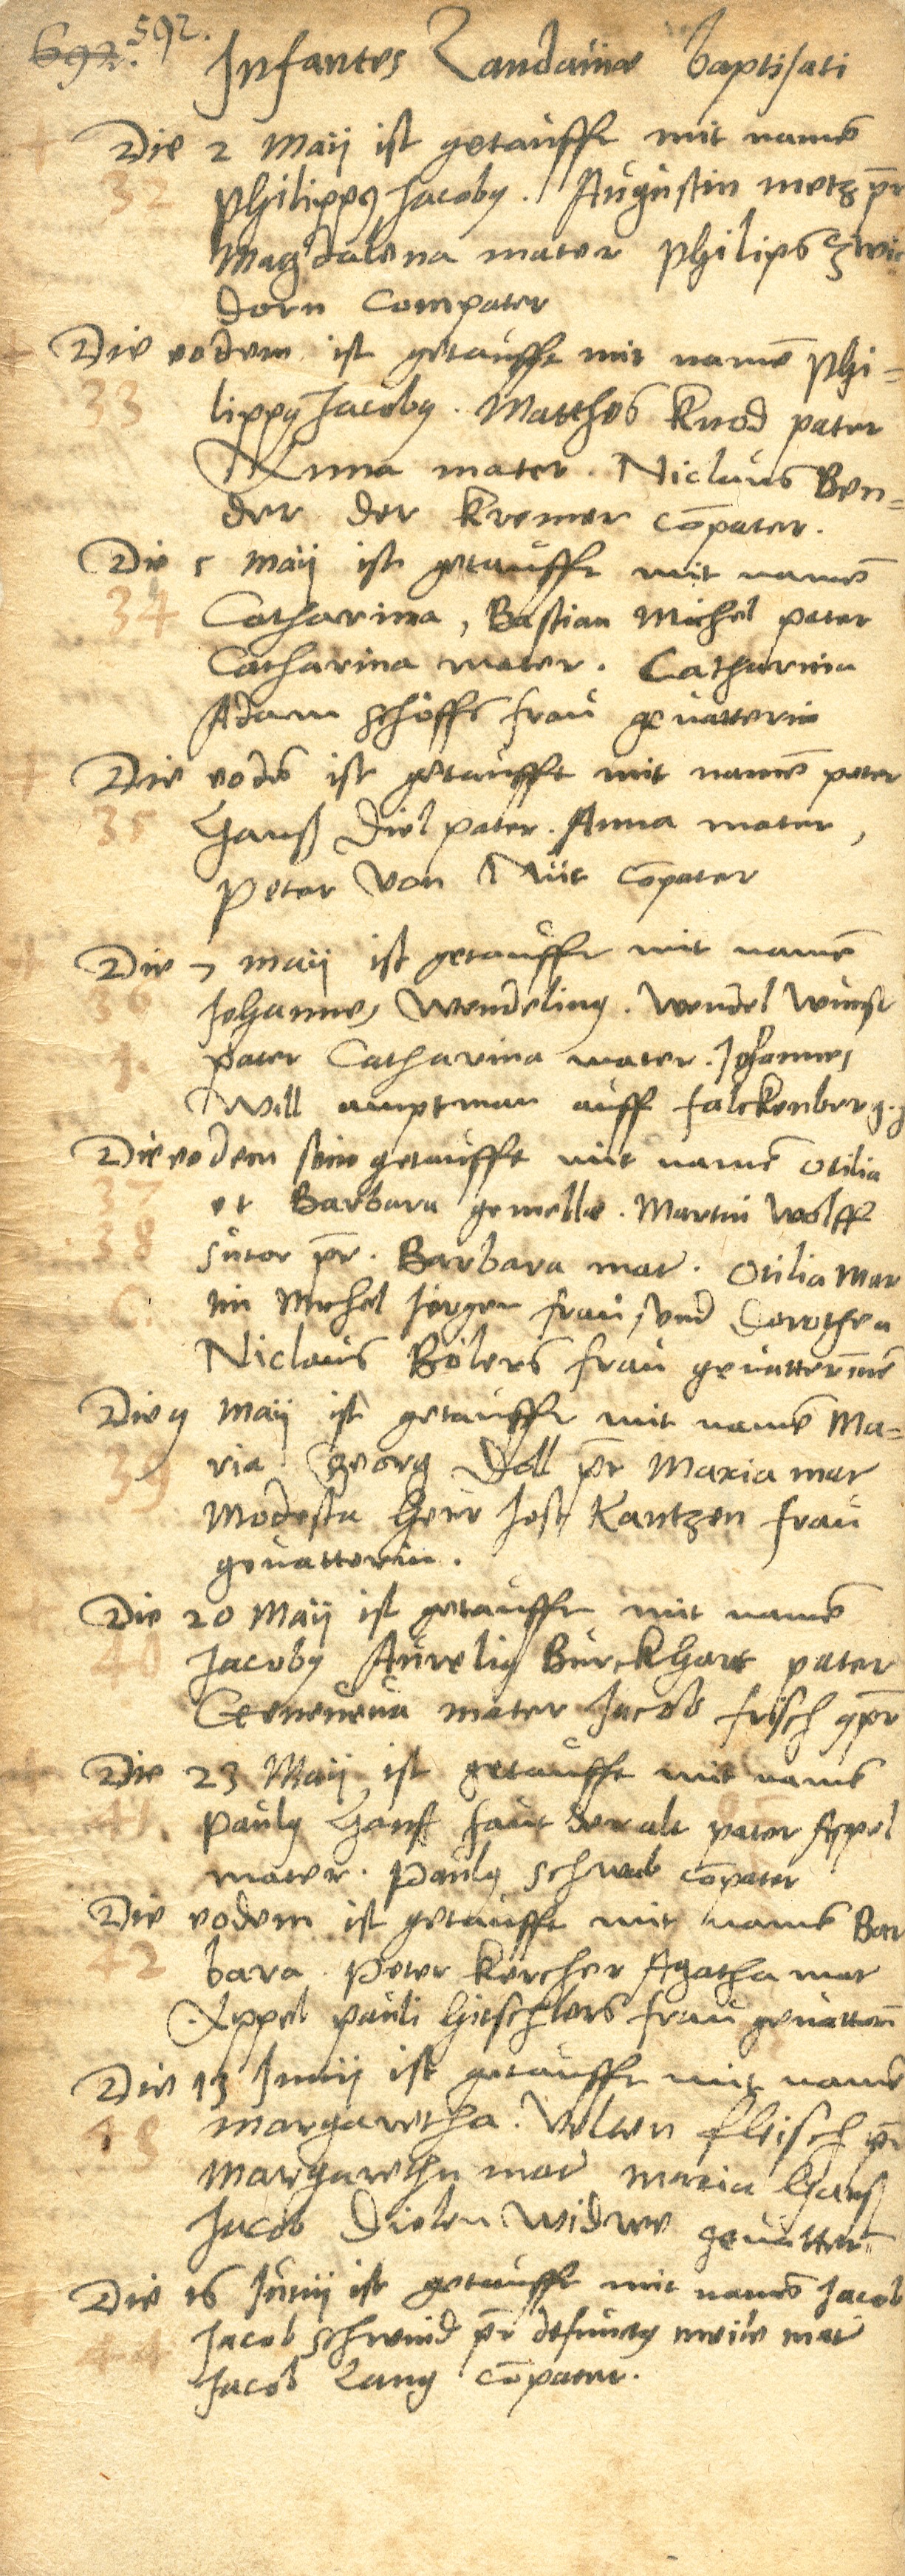 692. 592.
Infantes Landauiae baptisati
Die 2 Maij ist getaufft mit namē
32 Philippus Jacobus. Augustin metz pr̄
Magdalena mater Philips Zwi
dorn Compater
Die eodem ist getaufft mit namē Phi=
33 lippus Jacobus. Matthes Knod pater
Anna mater. Niclaus Ben=
der der Kremer cōpater.
Die 5 Maij ist getaufft mit namē
34 Catharina, Bastian Michel pater
Catharina mater. Catharina
Adam schöffs frau geuatterin
Die eodē ist getaufft mit namē peter
35 Hanß Diel pater. Anna mater,
Peter von cōpater
Die 7 maij ist getaufft mit namē
36 Johannes Wendelinus. Wendel
1. pater Catharina mater. Johannes
Will amptman auff falckenberg.
Die eodem sein getaufft mit namē Otilia
37 et Barbara gemellae. Martin Wolff
38 sutor pr̄. Barbara mat. Otilia Mar
C. tin Michel Jörgen frau, und Dorothea
Niclaus Bölers frau geuatterinnē
Die 9 Maij ist getaufft mit namē Ma=
39 ria Georg Doll pr̄ Maria mat
Modesta Herr Jost Kantzen frau
geuatterin.
Die 20 Maij ist getaufft mit namē
40 Jacobus Aurelius Burckhart pater
Geneueua mater Jacob frisch cpr̄
Die 23 Maij ist getaufft mit namē
41. Paulus Hanß faut der alt pater Appel
mater. Paulus schwab cōpater
Die eodem ist getaufft mit namē Bar
42 bara. Peter Kercher Agatha mat
Appel Pauli Hitschlers frau geuatterī
Die 13 Junij ist getaufft mit namē
43 Margaretha. Velten fleisch pr̄
Margaretha mat maria Hanß
Jacob Dielen Widwe geuatter
Die 16 Junij ist getaufft mit namē Jacob
44 Jacob schweind pr̄ defunctus mat
Jacob Lang cōpater.